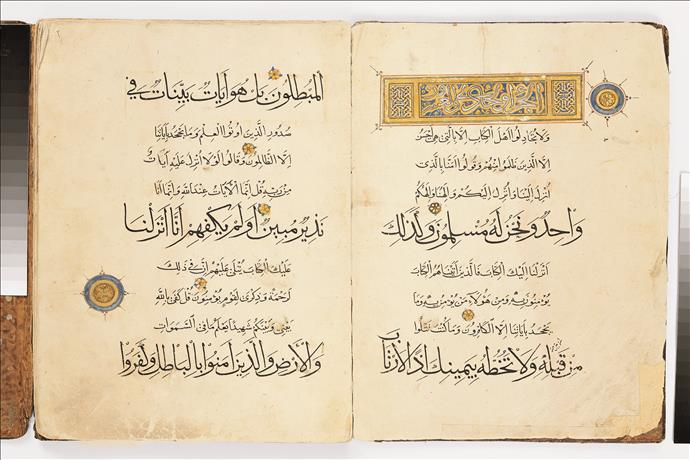 الجزء الحادي والعشرون
ولا تجادلوا اهل الكتاب الا بالتي هي احسن
الا الذين ظلموا منهم وقولوا امنا بالذي
انزل الينا وانزل اليكم والهنا والهكم
واحد ونحن له مسلمون وكذلك
انزلنا اليك الكتاب فالذين اتيناهم الكتاب
يؤمنون به ومن هؤلاء من يؤمن به وما
يجحد باياتنا الا الكافرون وما كنت تتلوا
من قبله ولا تخطه بيمينك اذا لارتاب
المبطلون بل هو ايات بينات في
صدور الذين اوتوا العلم وما يجحد باياتنا
الا الظالمون وقالوا لولا انزل عليه ايات
من ربه قل انما الايات عند الله وانما انا
نذير مبين اولم يكفهم انا انزلنا
عليك الكتاب يتلى عليهم ان في ذلك
لرحمة وذكرى لقوم يؤمنون قل كفى بالله
بيني وبينكم شهيدا يعلم ما في السموات
والارض والذين امنوا بالباطل وكفروا